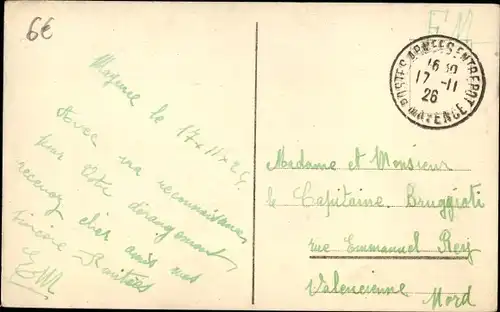 6€
F.M.
POSTES ARMEES ENTREPOT
16 30
17-11
26
MAYENCE
Mayence le 17 11
Avec ma reconnaissance
pour votre dérangement
recevez cher amis mes
sincère Amitiées
Madame et Monsieur
le Capitaine Bruggioti
rue Emmanuel Rey
Valencienne
Nord